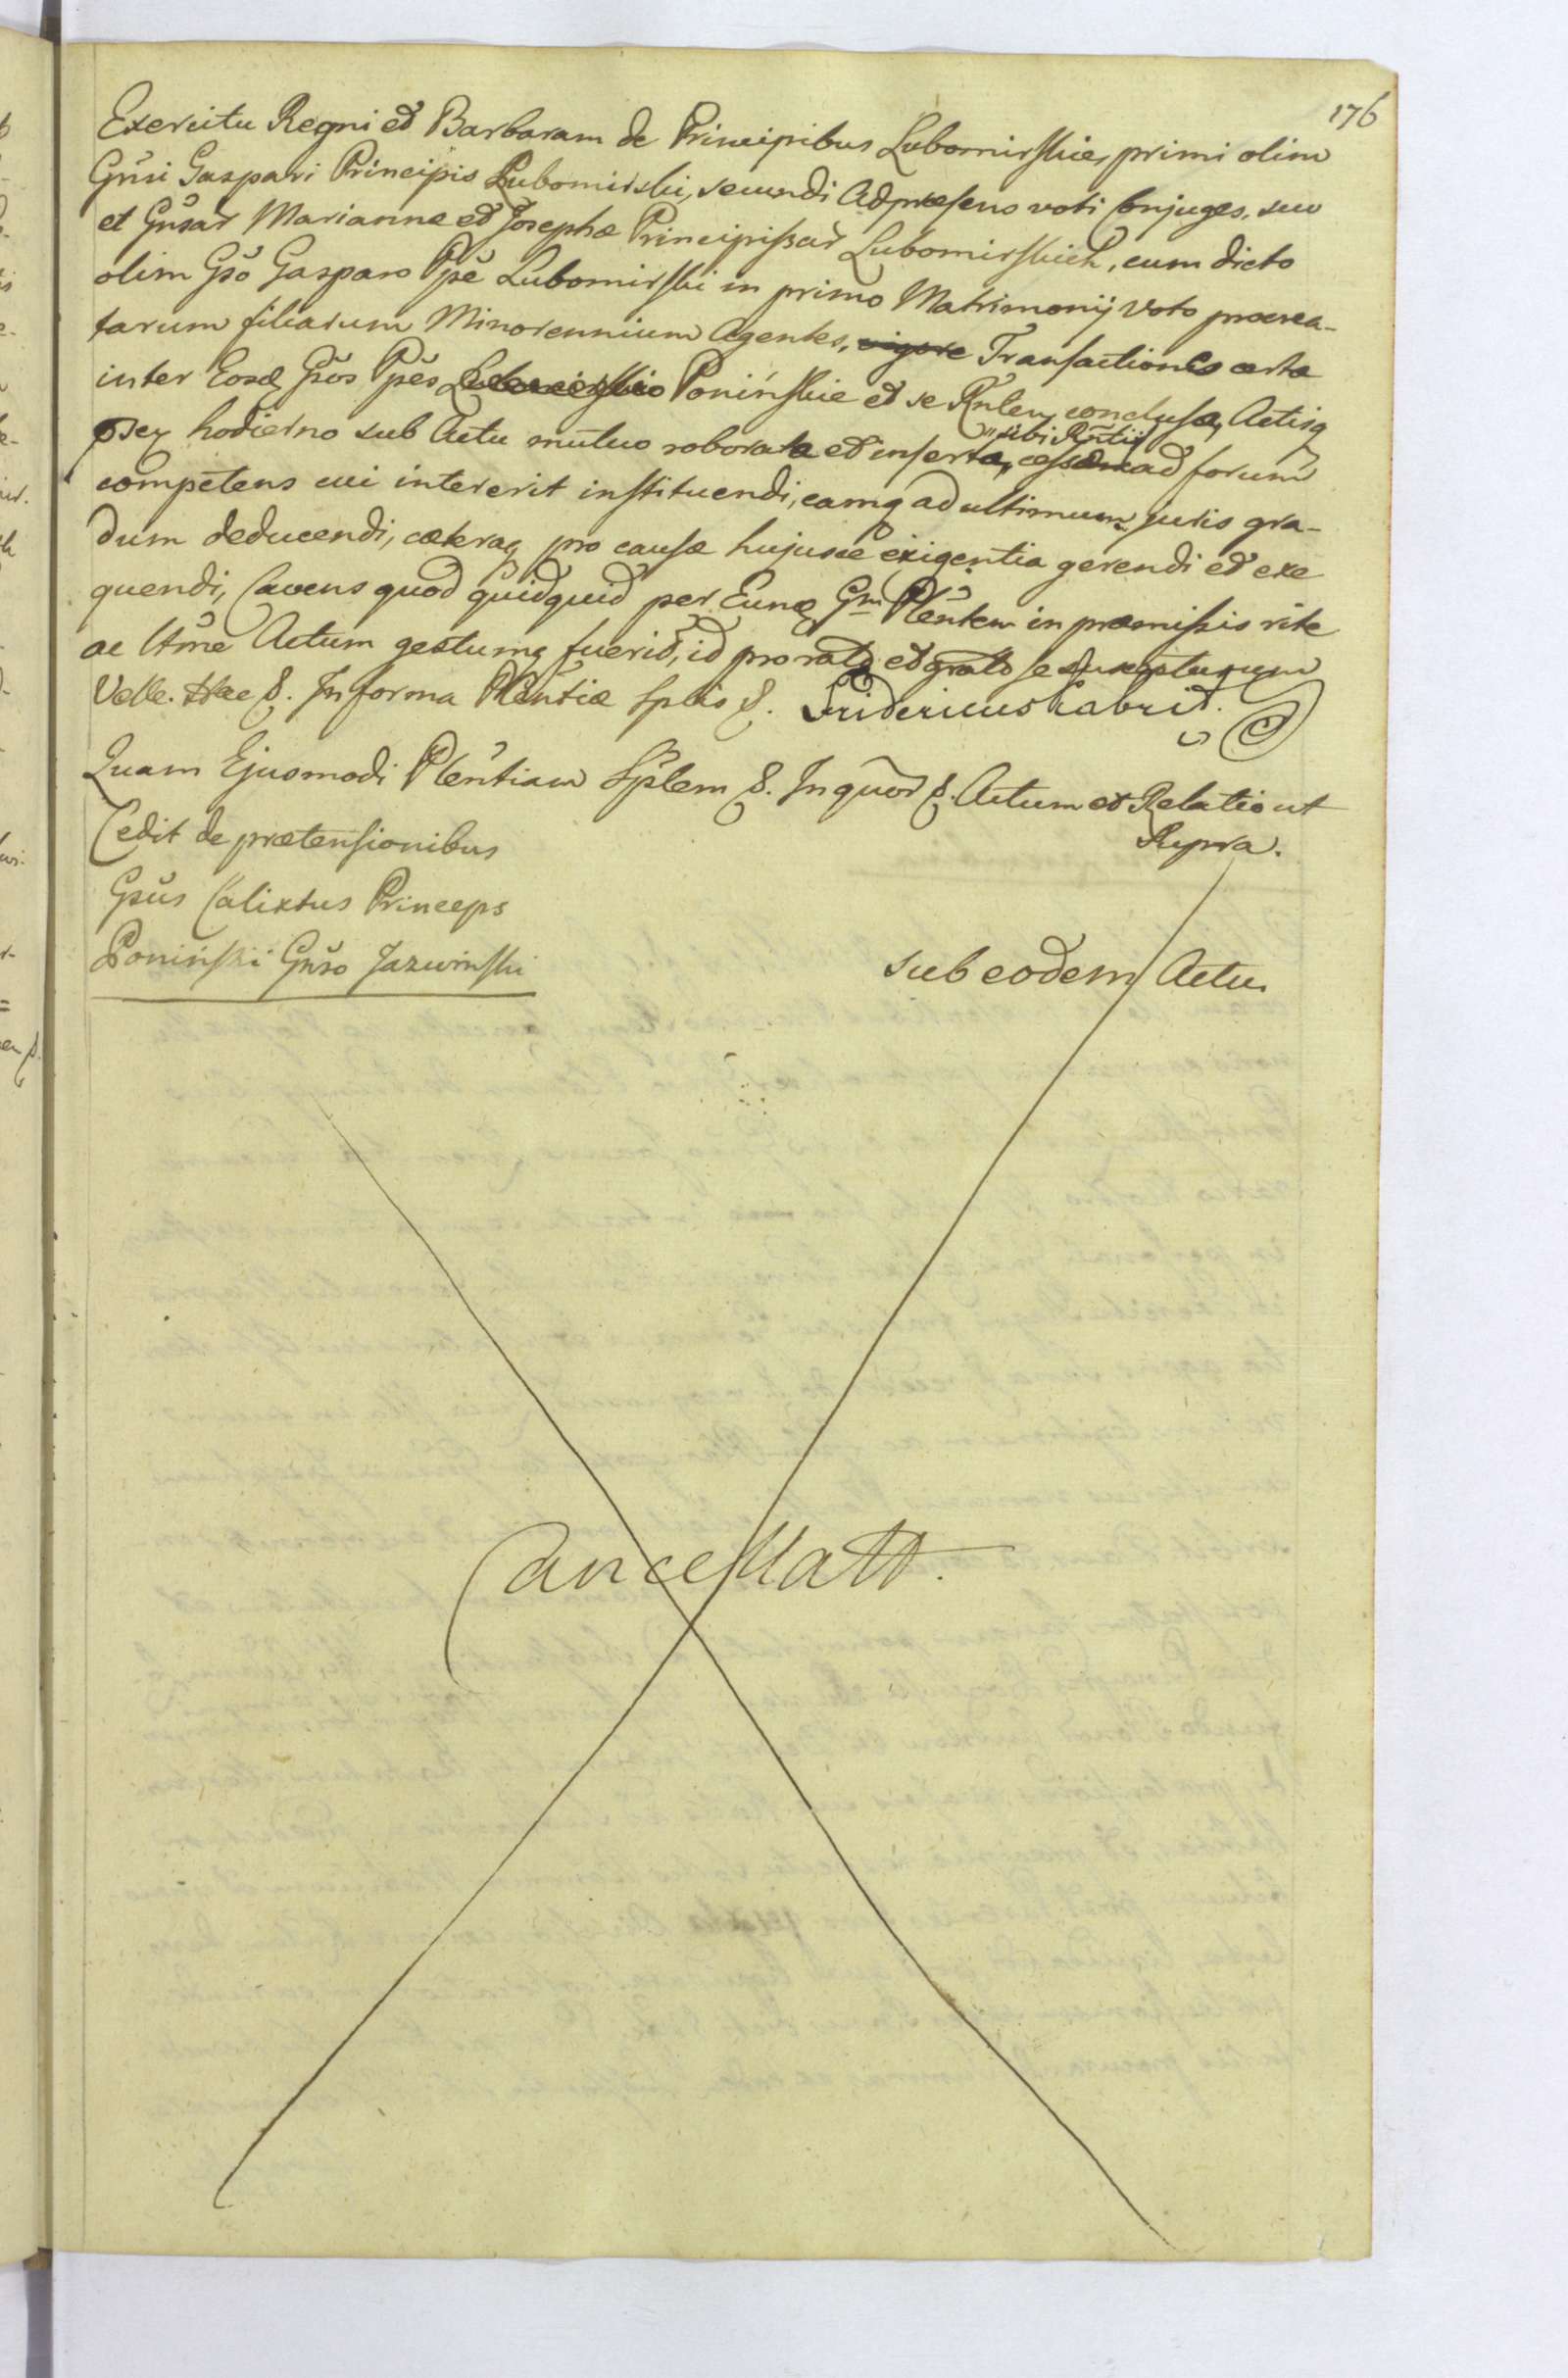 176
Exercitu Regni et Barbaram de Principibus Lubomirskie, primi olim
Gñsi Gaspari Principis Lubomirski, secundi Adpræsens voti Conjuges, suo
et Gñsar Mariannæ et Josephæ Principißar Lubomirskich, cum dicto
olim Gsõ Gasparo Ppẽ Lubomirski in primo Matrimonij Voto procrea-
tarum filiarum Minorennium Agentes, vigore Transactiones certæ
inter Eosq Gsõs Ppẽs Poninskie et se Rñtem conclusæ, Actisq
pñtibus hodierno sub Actu mutuo roboratæ et insertæ, ad forum
sibi Rñtij
competens cui intererit instituendi, eamq ad ultimum juris gra-
dum deducendi, cæteraq pro causæ hujusce exigentia gerendi et exe
quendi, Cavens quod quidquid per Eunq Gm Plẽntem in præmißis rite
ac ltĩme Actum gestumq fuerit, id pro rato et grato se suscepturum
Velle. Hac &. In forma Plẽntiæ Splis &. Fridericus Cabrit.
Quam Ejusmodi Plẽntiam Splem &. In quor &. Actum et Relatio ut
Supra.
Cedit de prætensionibus
Gsũs Calixtus Princeps
Poniński Gñso Jazwinski
sub eodem Actu
Cancellatt.